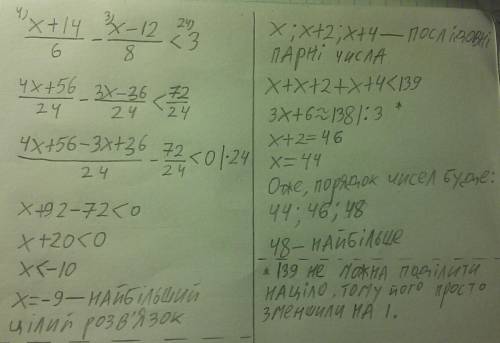 4) 3) 24)
x+14/6 - x-12/8 < 3
4x+56/24 - 3x-36/24 < 72/24
4x+56-3x+36/24 - 72/24 < 0 |·24
x+92-72<0
x+20<0
x<-10
x=-9 — НАЙБІЛЬШИЙ
ЦІЛИЙ РОЗВ'ЯЗОК
x; x+2; x+4 — ПОСЛІДОВНІ
ПАРНІ ЧИСЛА
x+x+2+x+4<139
3x+6≈138 |:3 *
x+2=46
x=44
Отже, порядок чисел буде:
44; 46; 48
48 — НАЙБІЛЬШЕ
* 139 НЕ МОЖНА ПОДІЛИТИ
НАЦІЛО, ТОМУ ЙОГО ПРОСТО
ЗМЕНШИЛИ НА 1.